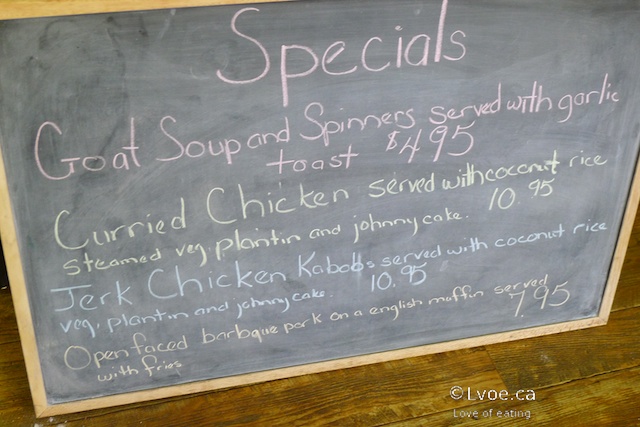 Specials
Goat Soup and Spinners served with garlic
toast $4.95
Curried Chicken served with coconut rice
steamed veg, plantin and johnny cake. 10.95
Jerk Chicken Kabobs served with coconut rice
veg, plantin and johnny cake. 10.95
Open faced barbque pork on a english muffin served
with fries 7.95
©Lvoe.ca
Love of eating